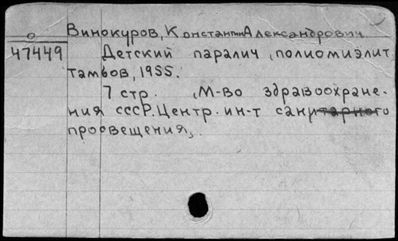 О
Винокуров, Константин Александрович
47449 Детский паралич, полиомиэлит
тамбов, 1955.
7 стр. , М-во здравоохране-
ния СССР. Центр. ин-т санитарного
просвещения,.